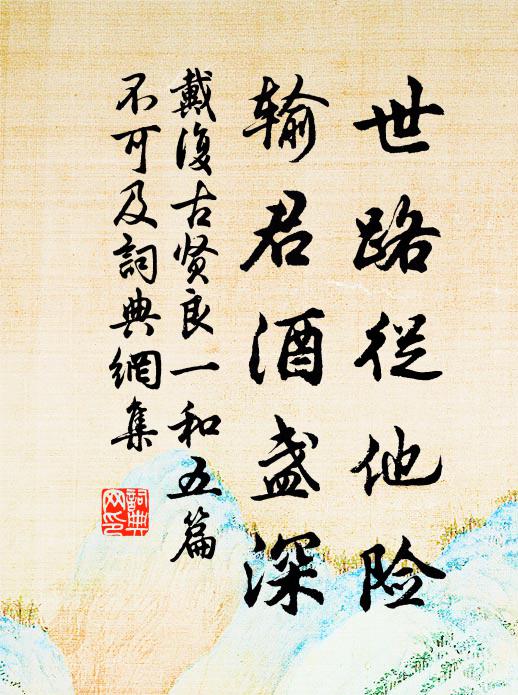 世路從他险
输君酒盏深
戴復古贤良一和五篇
不可及詞典網集
詞典
网印